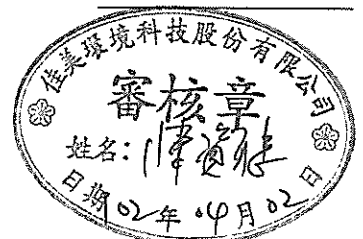 佳美環境科技股份有限公司
審核章
姓名:
日期 102年 04月 02日